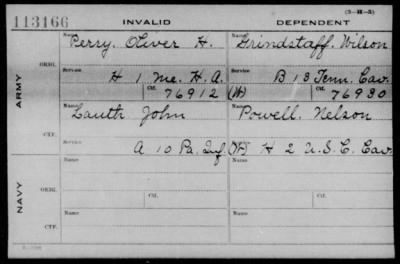 113166 INVALID DEPENDENT (3-H-3)
Name Name
Perry, Oliver H. Grindstaff, Wilson
ORIG. Service Service
H 1 Me. H.A. B 13 Tenn. Cav.
Ctf. Ctf.
76912 (W) 76930
ARMY
Name Name
Lauth John Powell, Nelson
CTF. Service
A 10 Pa. Inf (W) H 2 U.S.C. Cav.
Name Ctf. Name Ctf.
ORIG.
NAVY
Name Name
CTF.